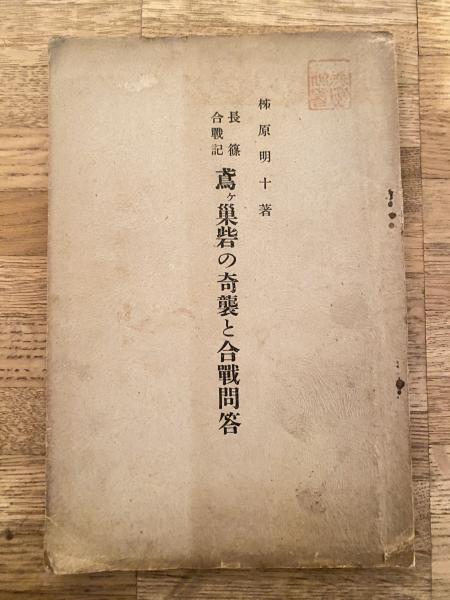 柿原明十著
長篠
合戰記
鳶ヶ巢砦の奇襲と合戰問答